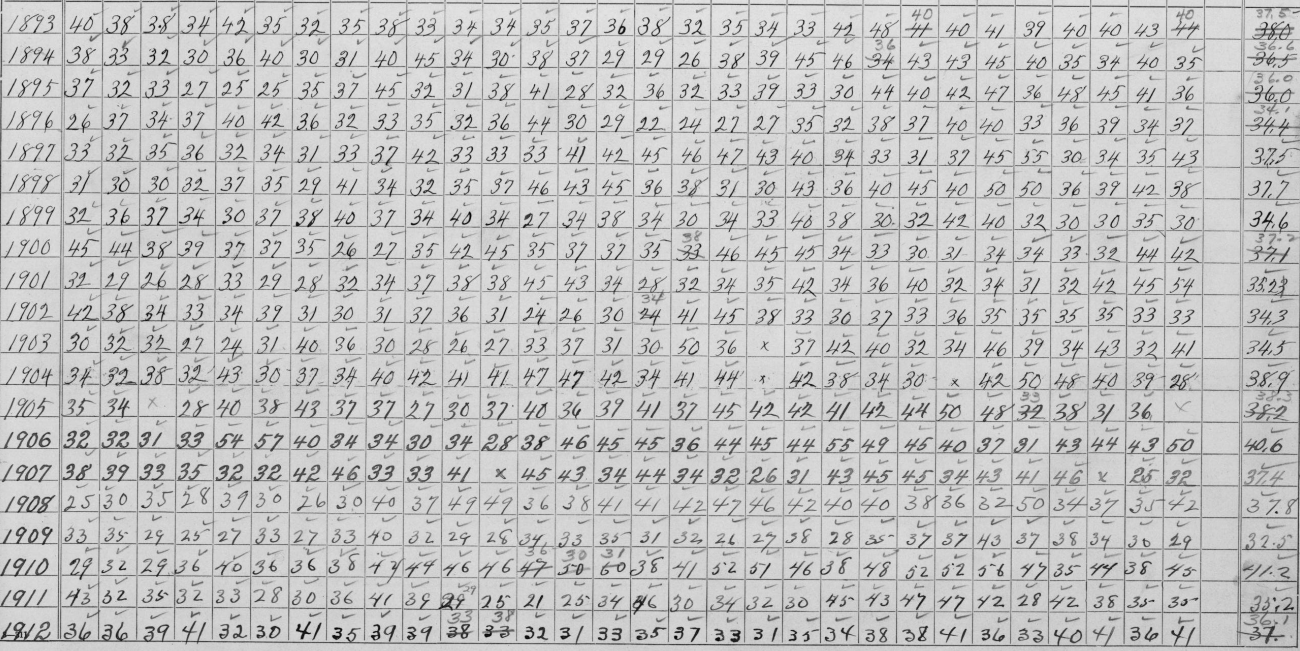 1893 40 38 38 34 42 35 32 35 38 33 34 34 35 37 36 38 32 35 34 33 42 48 41 40 40 41 39 40 40 43 44 40 38.0 37.5
1894 38 33 32 30 36 40 30 31 40 45 34 30 38 37 29 29 26 38 39 45 46 34 36 43 43 45 40 35 34 40 35 36.5 36.6
1895 37 32 33 27 25 25 35 37 45 32 31 38 41 28 32 36 32 33 39 33 30 44 40 42 47 36 48 45 41 36 36.0 36.0
1896 26 37 34 37 40 42 36 32 33 35 32 36 44 30 29 22 24 27 27 35 32 38 37 40 40 33 36 39 34 37 34.4 34.1
1897 33 32 35 36 32 34 31 33 37 42 33 33 33 41 42 45 46 47 43 40 34 33 31 37 45 55 30 34 35 43 37.5
1898 31 30 30 32 37 35 29 41 34 32 35 37 46 43 45 36 38 31 30 43 36 40 45 40 50 50 36 39 42 38 37.7
1899 32 36 37 34 30 37 38 40 37 34 40 34 27 34 38 34 30 34 33 40 38 30 32 42 40 32 30 30 35 30 34.6
1900 45 44 38 39 37 37 35 26 27 35 42 45 35 37 37 35 33 38 46 45 45 34 33 30 31 34 34 33 32 44 42 37.1 37.2
1901 32 29 26 28 33 29 28 32 34 37 38 38 45 43 34 28 32 34 35 42 34 36 40 32 34 31 32 42 45 54
1902 42 38 34 33 34 39 31 30 31 37 36 31 24 26 30 24 34 41 45 38 33 30 37 33 36 35 35 35 35 33 33 34.3
1903 30 32 32 27 24 31 40 36 30 28 26 27 33 37 31 30 50 36 x 37 42 40 32 34 46 39 34 43 32 41 34.5
1904 34 32 38 32 43 30 37 34 40 42 41 41 47 47 42 34 41 44 x 42 38 34 30 x 42 50 48 40 39 28 38.9
1905 35 34 x 28 40 38 43 37 37 27 30 37 40 36 39 41 37 45 42 42 41 42 44 50 48 32 33 38 31 36 x 38.2 38.3
1906 32 32 31 33 54 57 40 34 34 30 34 28 38 46 45 45 36 44 45 44 55 49 45 40 37 31 43 44 43 50 40.6
1907 38 39 33 35 32 32 42 46 33 33 41 x 45 43 34 44 34 32 26 31 43 45 45 34 43 41 46 x 25 32 37.4
1908 25 30 35 28 39 30 26 30 40 37 49 49 36 38 41 41 42 47 46 42 40 40 38 36 32 50 34 37 35 42 37.8
1909 33 35 29 25 27 33 27 33 40 32 29 28 34 33 35 31 32 26 27 38 28 35 37 37 43 37 38 34 30 29 32.5
1910 29 32 29 36 40 36 36 38 44 44 46 46 47 36 50 30 60 31 38 41 52 51 46 38 48 52 52 56 47 35 44 38 45 41.2
1911 43 32 35 32 33 28 30 36 41 39 29 39 25 21 25 34 46 30 34 32 30 45 43 47 47 42 28 42 38 35 35 35.2
1912 36 36 39 41 32 30 41 35 39 39 38 33 33 38 32 31 33 35 37 33 31 35 34 38 38 41 36 33 40 41 36 41 37. 36.1